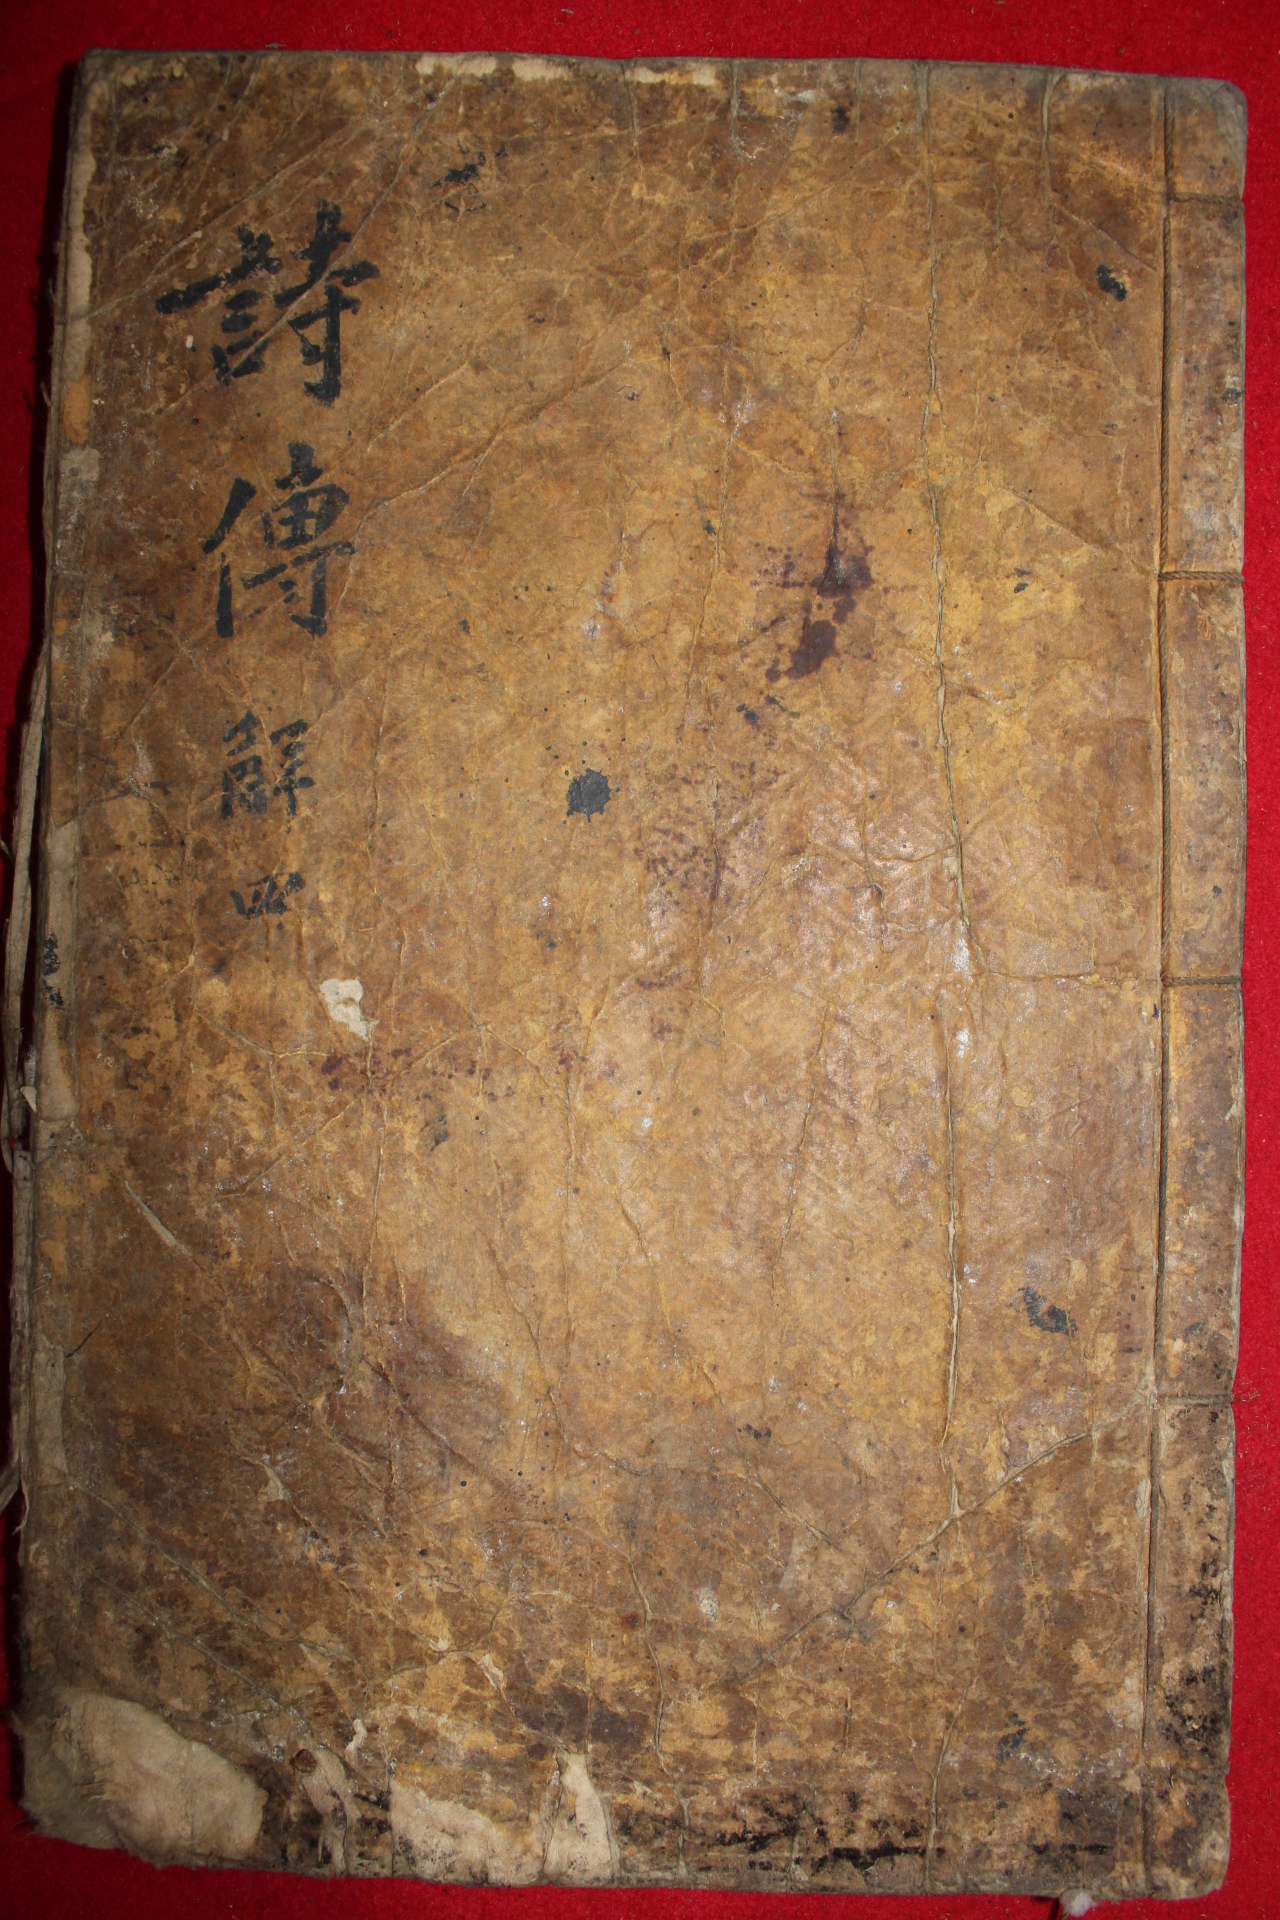 詩傳解四